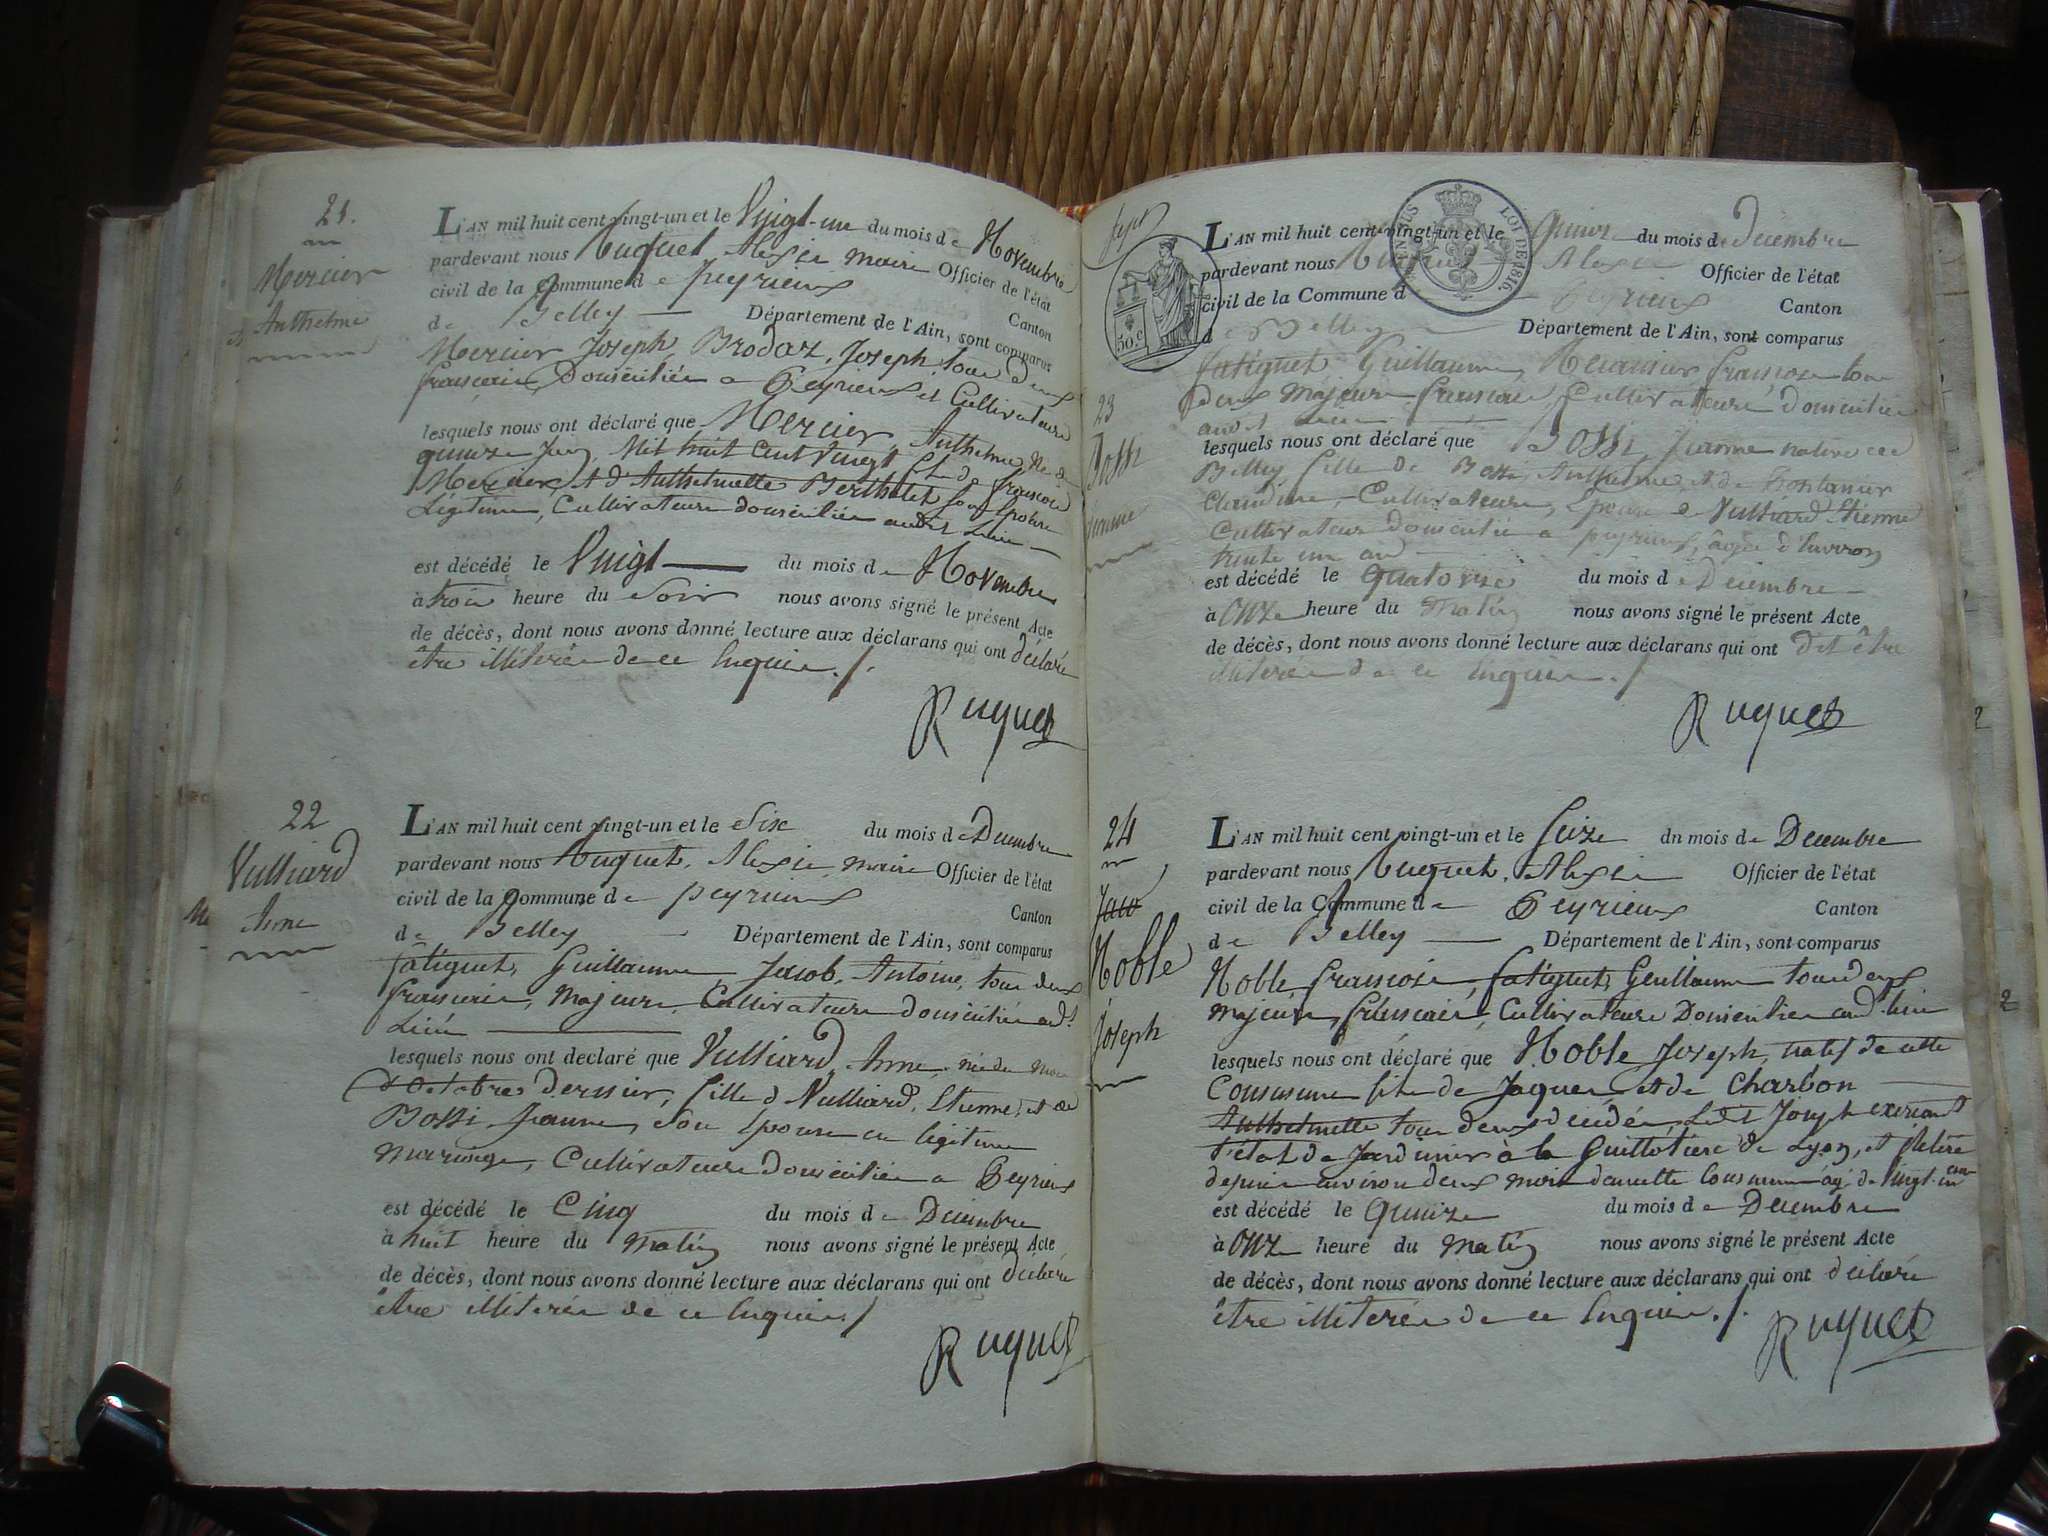 21.
Mercier
Anthelme
L'AN mil huit cent vingt-un et le Vingt-un du mois de Novembre
pardevant nous Ruquet Alexis maire Officier de l'état
civil de la Commune de peyrieux Canton
de Belley Département de l'Ain, sont comparus
Mercier Joseph, Brodaz, Joseph, tous deux
français, Domiciliés a Peyrieux et Cultivateurs
lesquels nous ont déclaré que Mercier Anthelme, Né le
quinze Juin Mil huit Cent Vingt fils de françois
Mercier, et d'Anthelmette Berthelet son Epouse
Légitime, Cultivateurs domiciliés audit Lieu
est décédé le Vingt du mois de Novembre
à trois heure du Soir nous avons signé le présent Acte
de décès, dont nous avons donné lecture aux déclarans qui ont déclaré
être illiterés de ce Enquis./.
Ruquet
22
Vulliard
Anne
L'AN mil huit cent vingt-un et le Six du mois de Decembre
pardevant nous Ruquet, Alexis, maire Officier de l'état
civil de la Commune de peyrieux Canton
de Belley Département de l'Ain, sont comparus
fatiguet, Guillaume, Jacob, Antoine, tous deux
français, Majeurs, Cultivateurs domiciliés aud.t
Lieu
lesquels nous ont declaré que Vulliard, Anne, née du mois
d'Octobre dernier, fille d Vulliard, Etienne, et de
Bossi Jeanne, son Epouse en légitime
mariage, Cultivateurs domiciliés a Peyrieux
est décédé le Cinq du mois de Décembre
à huit heure du Matin nous avons signé le présent Acte
de décès, dont nous avons donné lecture aux déclarans qui ont déclaré
être illiterés de ce Enquis./
Ruquet
LOI DE 1816.
50.c
23
Bossi
Jeanne
L'AN mil huit cent vingt-un et le Quinze du mois de Décembre
pardevant nous Ruquet Alexis Officier de l'état
civil de la Commune d Peyrieux Canton
de Belley Département de l'Ain, sont comparus
fatiguet Guillaume, françois tous
deux Majeurs français, Cultivateurs domiciliés
audit Lieu
lesquels nous ont déclaré que Bossi, Jeanne native de
Belley fille de Bossi, Anthelme et de
Claudine, Cultivateurs, Epouse de Vulliard Etienne
Cultivateur domicilié a peyrieux, âgée d'Environ
trente un ans
est décédé le Quatorze du mois de Décembre
à Onze heure du Matin nous avons signé le présent Acte
de décès, dont nous avons donné lecture aux déclarans qui ont dit être
illiterés de ce Enquis./
Ruquet
24
Noble
Joseph
L'AN mil huit cent vingt-un et le Seize dn mois de Decembre
pardevant nous Ruquet, Alexis Officier de l'état
civil de la Commune de Peyrieux Canton
de Belley Département de l'Ain, sont comparus
Noble françois, fatiguet, Guillaume tous deux
majeurs, français, Cultivateurs Domiciliés aud.t lieu
lesquels nous ont déclaré que Noble Joseph, natif de cette
Commune fils de Jaques et de Charbon
Anthelmette tous deux décédés, Ledit Joseph exerçant
l'état de Jardinier à la Guillotiere de Lyon, et
depuis environ deux mois dans cette Commune âgé de Vingt-un
est décédé le Quinze du mois de Decembre
à Onze heure du Matin nous avons signé le présent Acte
de décès, dont nous avons donné lecture aux déclarans qui ont déclaré
être illiterés de ce Enquis./.
Ruquet